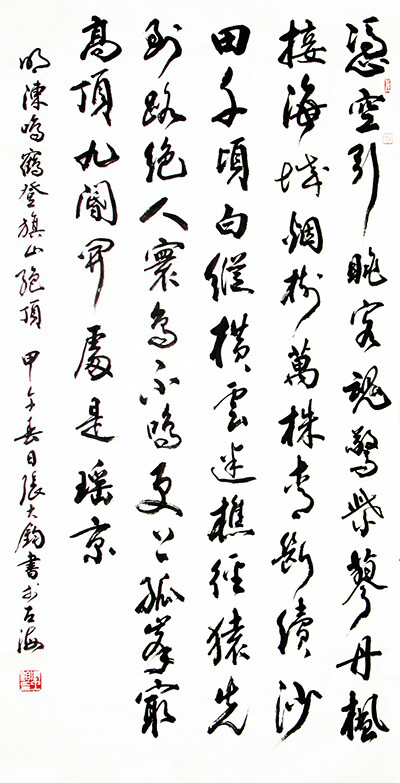 憑空引眺客魂驚紫蓼丹楓
接海城烟樹萬株青斷續沙
田千頃白縱橫雲迷樵徑猿先
到路絕人寰鳥不鳴更上孤峯最
高頂九閽開處是瑤京
明陳鳴鶴登旗山絕頂 甲午春日張大鈞書於左海